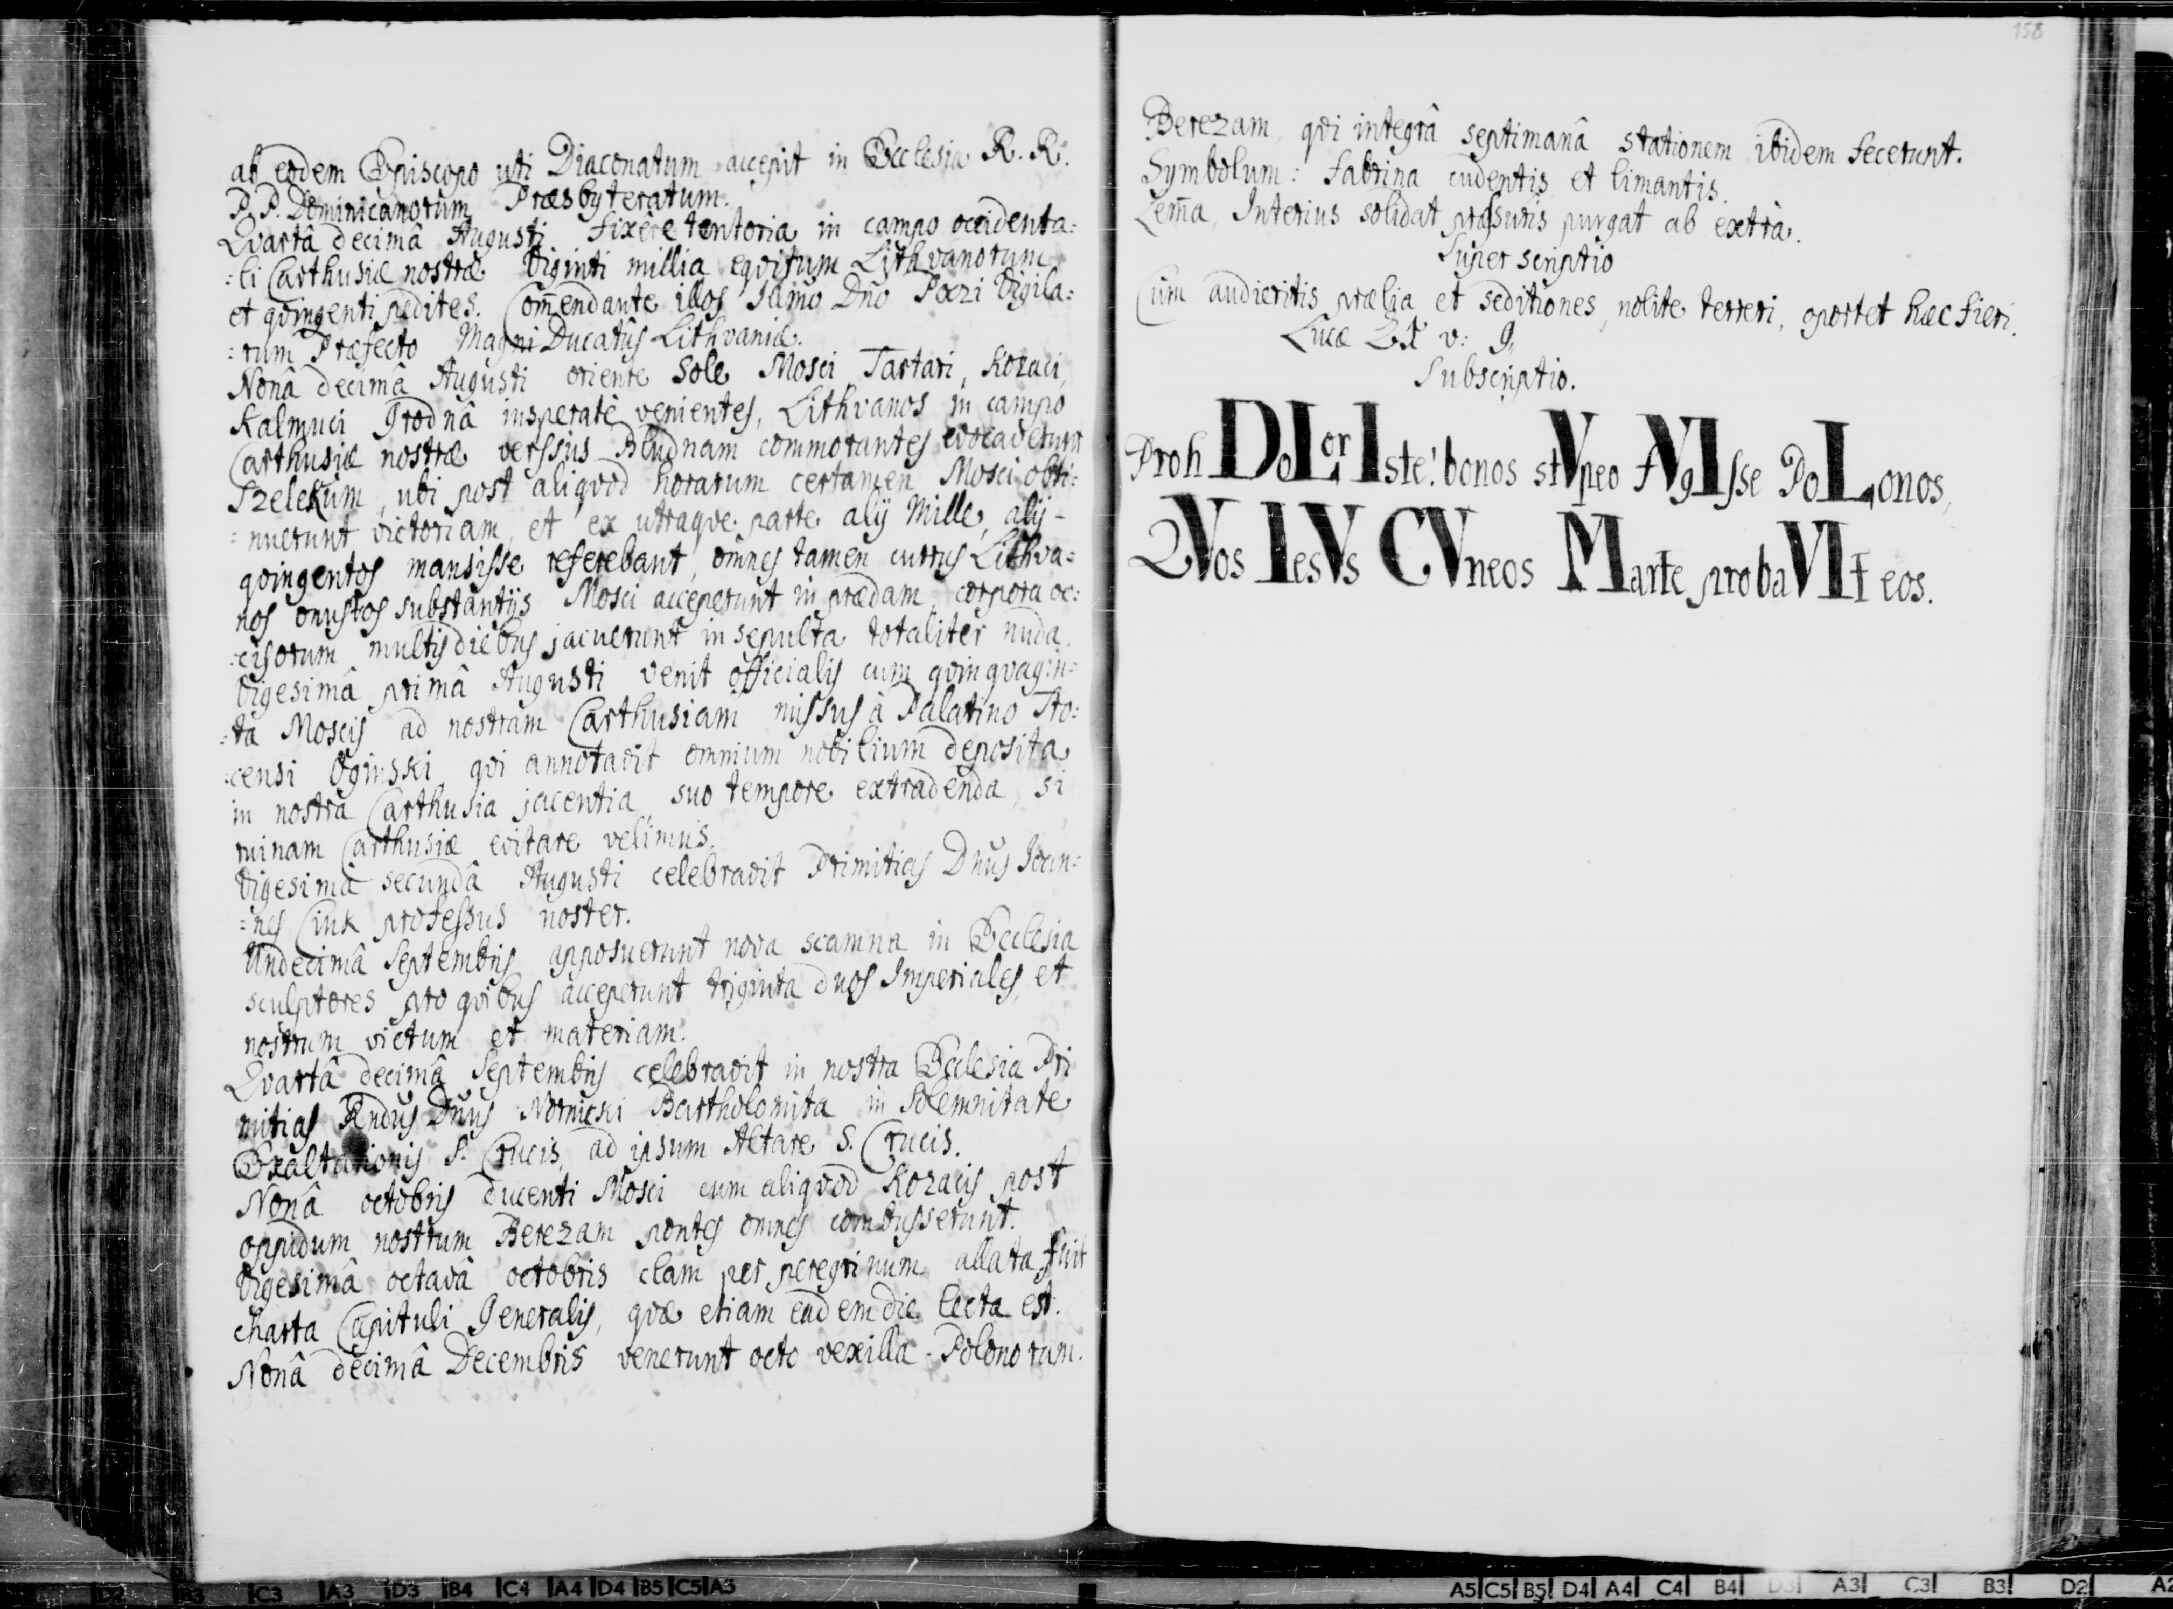 158
ab eodem Episcopo uti Diaconatum accepit in Ecclesia R. R.
P. P. Dominicanorum Præsbyteratum.
Qvartâ decimâ Augusti fixêre tentoria in campo occidenta:
:li Carthusiæ nostræ Viginti millia eqvitum Lithvanorum
et qvingenti pedites. Com̄endante illos Dño Pozi Vigila:
:rum Præfecto Magni Ducatûs Lithvaniæ.
Nonâ decimâ Augusti oriente Sole Mosci Tartari, Kozaci,
Kalmuci Grodnâ insperatè venientes, Lithvanos in campo
Carthusiæ nostræ verssus Bludnam commorantes evocaverunt
Szelekum, ubi post aliqvod horarum certamen Mosci obti:
:nuerunt victoriam, et ex utraqve parte alÿ Mille, alÿ-
qvingentos mansisse referebant, omnes tamen currus Lithva:
nos onustos substantÿs Mosci acceperunt in prædam, corpora oc:
:cisorum multis diebus jacuerunt insepulta totaliter nuda.
Vigesimâ primâ Augusti venit officialis cum qvinqvagin:
:ta Moscis ad nostram Carthusiam missus à Palatino Tro:
:censi Oginski, qvi annotavit omnium nobilium deposita
in nostra Carthusia jacentia, suo tempore extradenda, si
ruinam Carthusiæ evitare velimus.
Vigesimâ secundâ Augusti celebravit Primitias Dñus Ioan:
:nes Cink professus noster.
Undecimâ Septembris apposuerunt nova scamna in Ecclesia
sculptores pro qvibus acceperunt triginta duos Imperiales, et
nostrum victum et materiam.
Qvartâ decimâ Septembris celebravit in nostra Ecclesia Pri
mitias Rñdus Dñus Nornicki Bartholomita in Solemnitate
Exaltationis S. Crucis, ad ipsum Altare S. Crucis.
Nonâ octobris ducenti Mosci cum aliqvod Kozacis post
oppidum nostrum Berezam pontes omnes combusserunt.
Vigesimâ octavâ octobris clam per peregrinum allata fuit
charta Capituli Generalis, qvæ etiam eadem die lecta est.
Nonâ decimâ Decembris venerunt octo vexilla Polonorum.
Berezam qvi integrâ septimanâ stationem ibidem fecerunt.
Symbolum: fabrina cudentis et limantis.
Lem̄a, Interius solidat, præsuris purgat ab extrà.
Super scriptio
Cum audieritis prælia et seditiones, nolite terreri, oportet hæc fieri.
Lucæ 21 v: 9.
Subscriptio.
Proh DoLor Iste! bonos stVpeo fVgIsse PoLonos,
QVos IesVs CVneos Marte probaVIt eos.